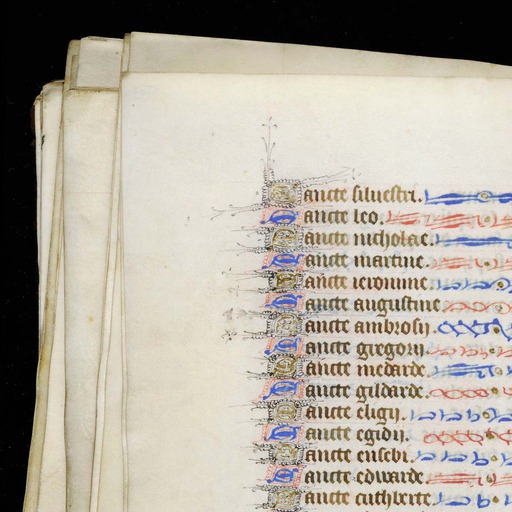 Sancte siluestri.
Sancte leo.
Sancte nicholae.
Sancte martine.
Sancte ieronime.
Sancte augustine
Sancte ambrosij
Sancte gregorij
Sancte medarde.
Sancte gildarde.
Sancte eligij.
Sancte egidij.
Sancte eusebi.
Sancte edwarde.
Sancte cuthberte.